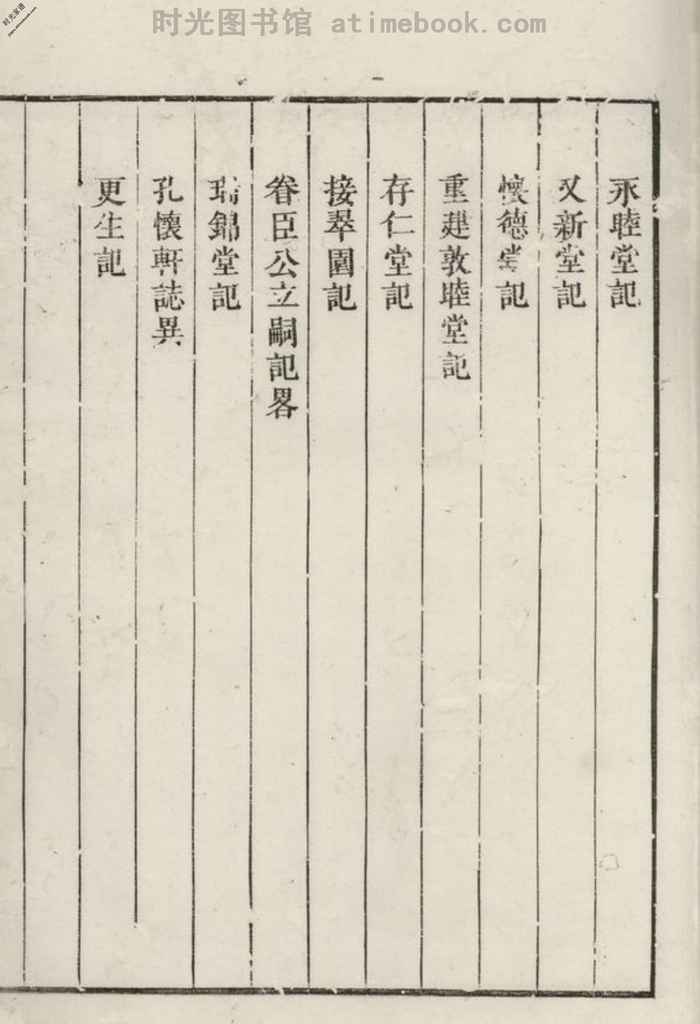 时光图书馆 atimebook.com
永睦堂記
又新堂記
懷德堂記
重建敦睦堂記
存仁堂記
接翠園記
眷臣公立嗣記畧
瑞錦堂記
孔懷軒誌異
更生記